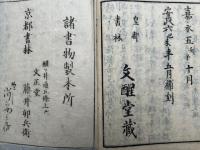 嘉永五年十月
安政六己未年五月補刻
皇都
書林
文醒堂藏
諸書物製本所
文正堂
京都書林 藤井卯兵衛